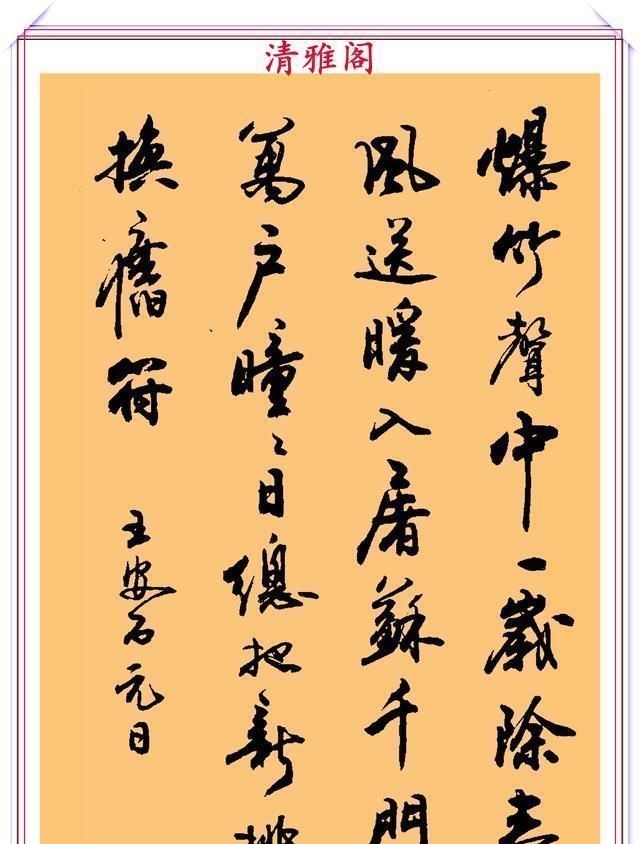 清雅阁
爆竹聲中一歲除春
風送暖入屠蘇千門
萬戶曈〻日總把新桃
換舊符
王安石元日